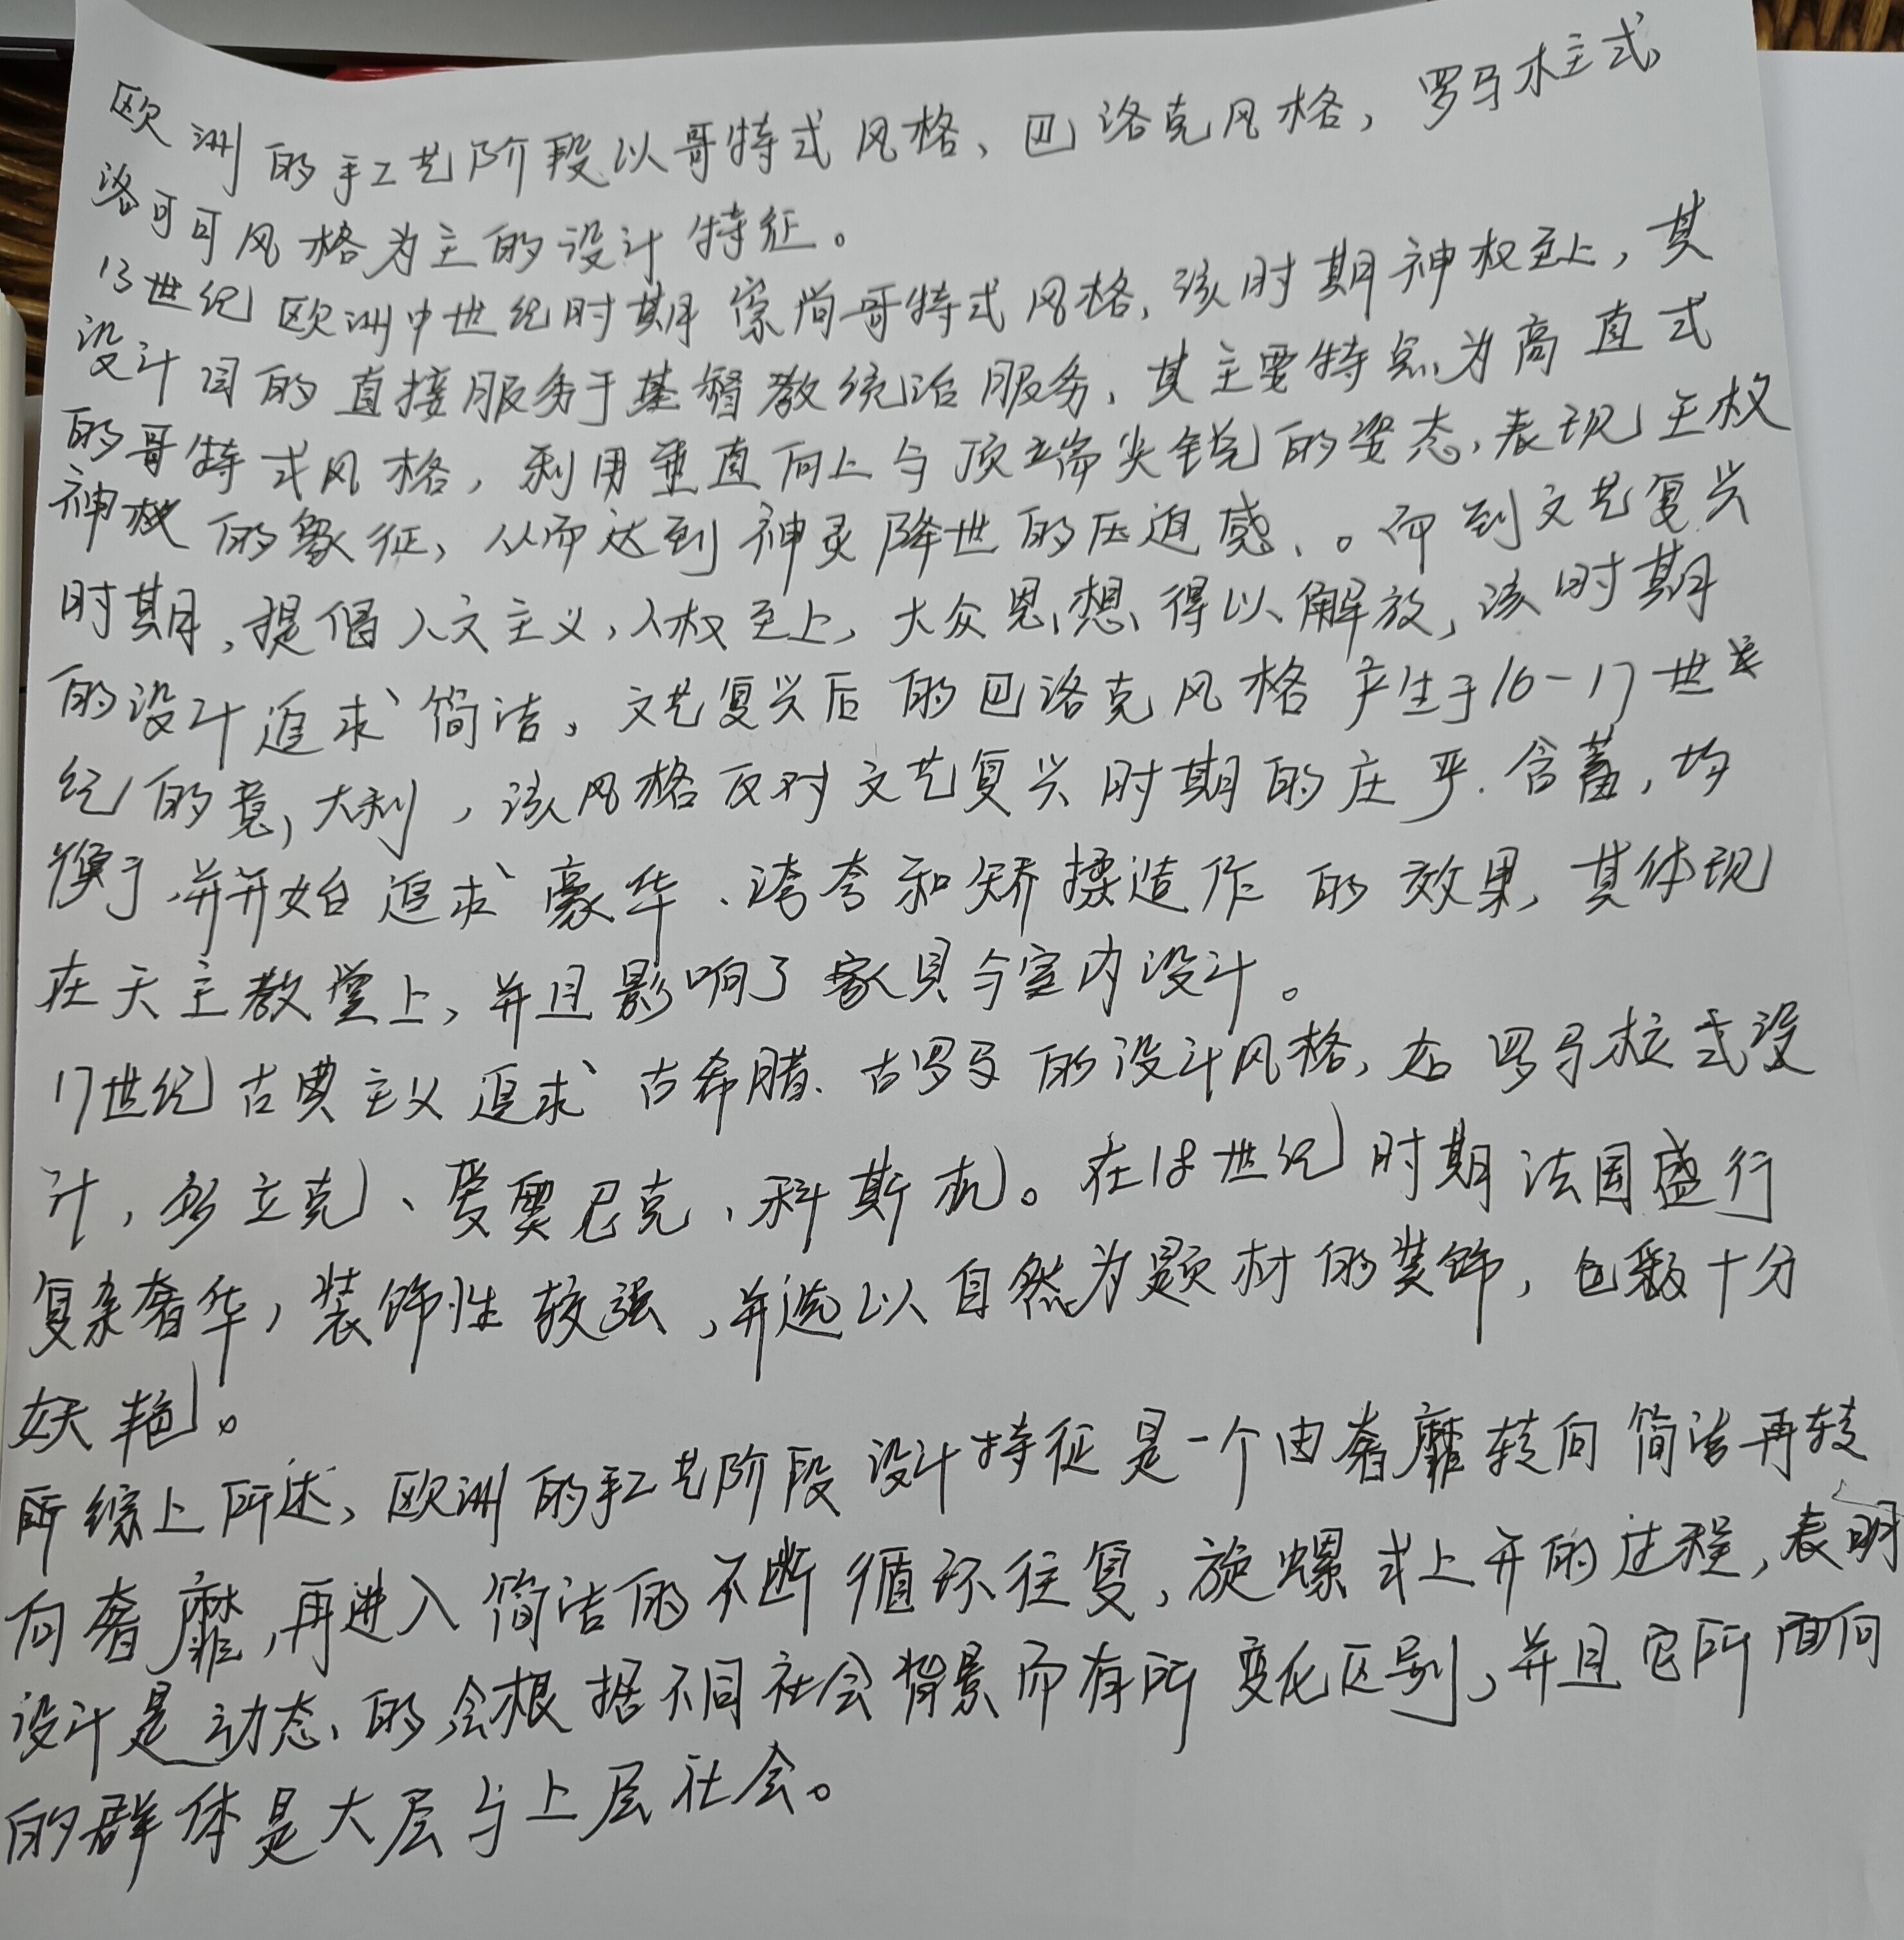 欧洲的手工艺阶段以哥特式风格、巴洛克风格，罗马柱式，
洛可可风格为主的设计特征。
13世纪欧洲中世纪时期崇尚哥特式风格，该时期神权至上，其
设计目的直接服务于基督教统治服务，其主要特点为高直式
的哥特式风格，利用垂直向上与顶端尖锐的姿态，表现王权
神权的象征，从而达到神灵降世的压迫感、。而到文艺复兴
时期，提倡人文主义，人权至上，大众思想得以解放，该时期
的设计追求简洁。文艺复兴后的巴洛克风格产生于16-17世
纪的意大利，该风格反对文艺复兴时期的庄严．含蓄，均
衡，并开始追求豪华、夸和矫揉造作的效果，其体现
在天主教堂上，并且影响了家具与室内设计。
17世纪古典主义追求古希腊、古罗马的设计风格，如罗马柱式设
计，多立克、爱奥尼克、科斯。在18世纪时期法国盛行
复杂奢华，装饰性较强，并选以自然为题材的装饰，色彩十分
妖艳。
所综上所述，欧洲的手工艺阶段设计特征是一个由奢靡转向简洁再转
向奢靡，再进入简洁的不断循环往复，旋螺式上升的过程，表明
设计是动态的会根据不同社会背景而有所变化区别，并且它所面向
的群体是大层与上层社会。